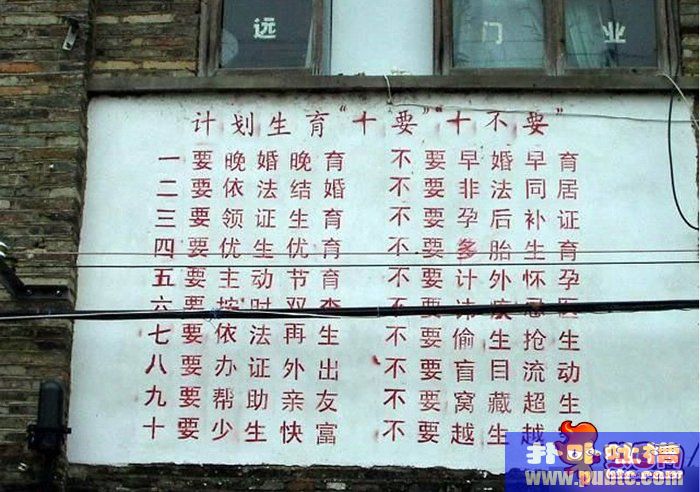 远 门 业
计划生育“十要”“十不要”
一要晚婚晚育 不要早婚早育
二要依法结婚 不要非法同居
三要领证生育 不要孕后补证
四要优生优育 不要多胎生育
五要主动节育 不要计外怀孕
六要按时双查 不要讳疾忌医
七要依法再生 不要偷生抢生
八要办证外出 不要盲目流动
九要帮助亲友 不要窝藏超生
十要少生快富 不要越生越